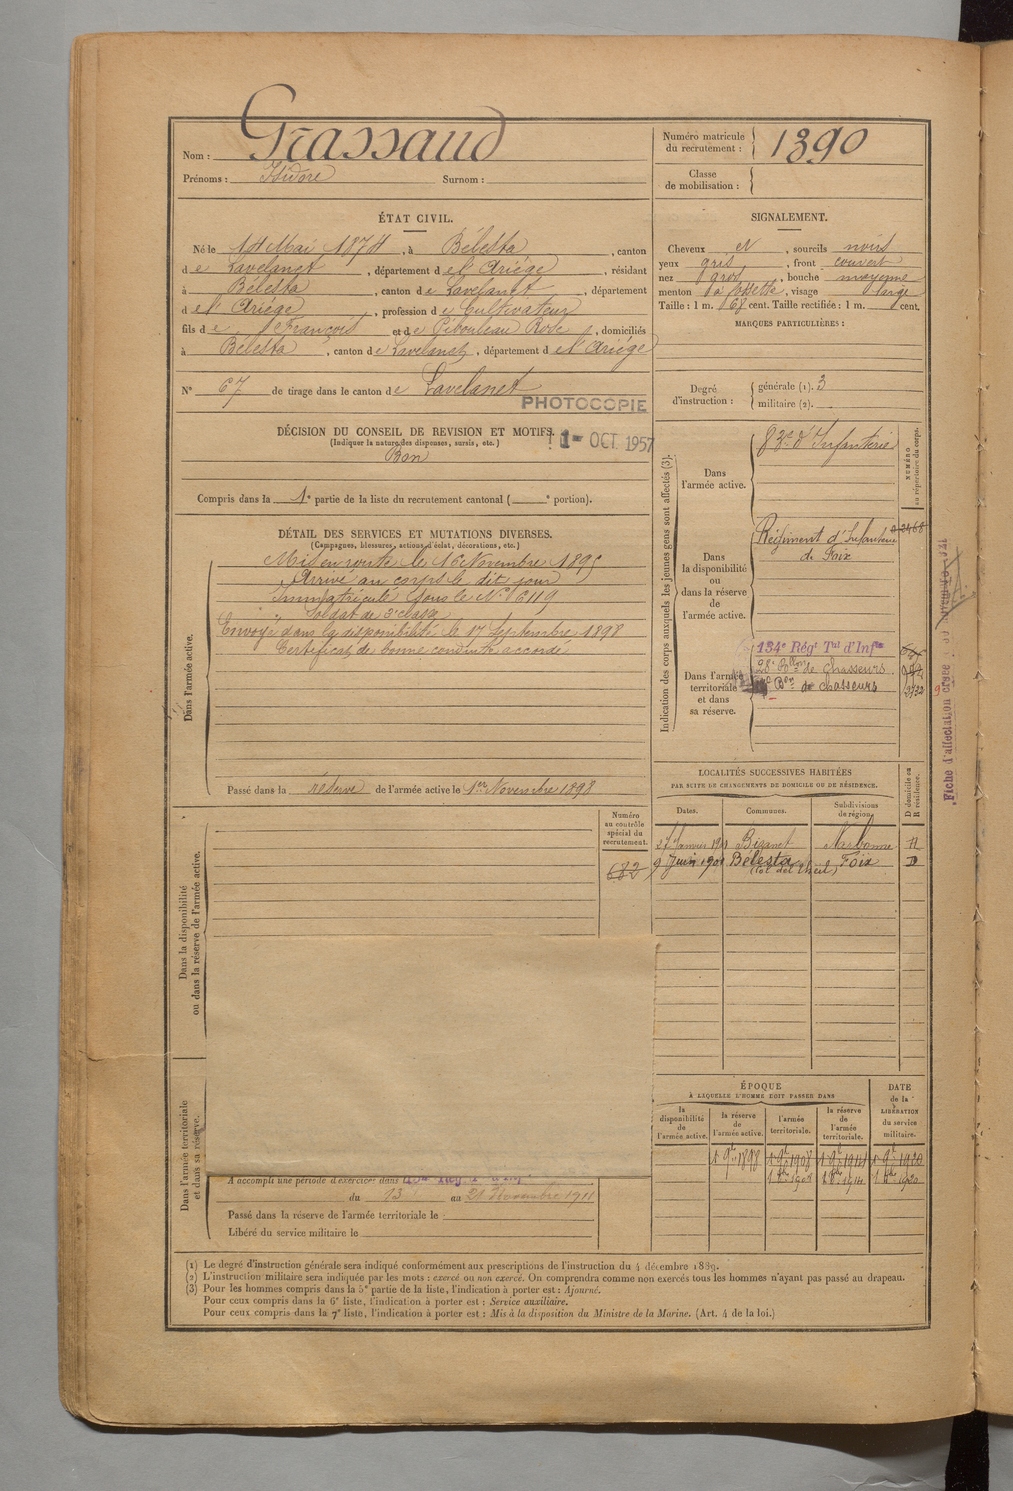 Nom : Grassaud
Prénoms : Isidore Surnom :
Numéro matricule du recrutement : 1390
Classe de mobilisation :
ÉTAT CIVIL.
Né le 14 Mai 1874, à Bélesta, canton
de Lavelanet, département de l'Ariège, résidant
à Bélesta, canton de Lavelanet, département
de l'Ariège, profession de Cultivateur
fils de François et de Rose, domiciliés
à Bélesta, canton de Lavelanet, département de l'Ariège
N° 67 de tirage dans le canton de Lavelanet
PHOTOCOPIE
1 - OCT. 1957
SIGNALEMENT.
Cheveux et, sourcils noirs
yeux gris, front couvert
nez gros, bouche moyenne
menton à fossette, visage large
Taille : 1 m. 68 cent. Taille rectifiée : 1 m. cent.
MARQUES PARTICULIÈRES :
Degré d'instruction : générale (1). 3
militaire (2).
DÉCISION DU CONSEIL DE REVISION ET MOTIFS.
(Indiquer la nature des dispenses, sursis, etc.)
Bon
Compris dans la 1e partie de la liste du recrutement cantonal ( e portion).
DÉTAIL DES SERVICES ET MUTATIONS DIVERSES.
(Campagnes, blessures, actions d'éclat, décorations, etc.)
Dans l'armée active.
Mis en route le 16 Novembre 1895
Arrivé au corps le dit jour
Immatriculé sous le N° 6119
Soldat de 2e classe
Envoyé dans la disponibilité le 17 Septembre 1898
Certificat de bonne conduite accordé
Passé dans la réserve de l'armée active le 1er Novembre 1898
Indication des corps auxquels les jeunes gens sont affectés (3).
NUMÉRO au répertoire du corps.
Dans l'armée active.
83e d'Infanterie
Dans la disponibilité ou dans la réserve de l'armée active.
Régiment d'Infanterie
de Foix
2468
Dans l'armée territoriale et dans sa réserve.
134e Régt Tal d'Infie
28e Bon de Chasseurs
Bon de chasseurs
Fiche d'affectation créée
LOCALITÉS SUCCESSIVES HABITÉES
PAR SUITE DE CHANGEMENTS DE DOMICILE OU DE RÉSIDENCE.
Dates. Communes. Subdivisions de région. D domicile ou R résidence.
27 Janvier 1901 Bizanet Narbonne R
9 Juin 1901 Bélesta Foix D
Dans la disponibilité ou dans la réserve de l'armée active.
Numéro au contrôle spécial du recrutement.
682
Dans l'armée territoriale et dans sa réserve.
A accompli une période d'exercices dans
du 13 au 21 Novembre 1911
Passé dans la réserve de l'armée territoriale le
Libéré du service militaire le
ÉPOQUE
À LAQUELLE L'HOMME DOIT PASSER DANS
la disponibilité de l'armée active. la réserve de l'armée active. l'armée territoriale. la réserve de l'armée territoriale.
DATE de la LIBÉRATION du service militaire.
1 9bre 1898 1 9bre 1908 1 9bre 1914 1 9bre 1920
(1) Le degré d'instruction générale sera indiqué conformément aux prescriptions de l'instruction du 4 décembre 1889.
(2) L'instruction militaire sera indiquée par les mots : exercé ou non exercé. On comprendra comme non exercés tous les hommes n'ayant pas passé au drapeau.
(3) Pour les hommes compris dans la 5e partie de la liste, l'indication à porter est : Ajourné.
Pour ceux compris dans la 6e liste, l'indication à porter est : Service auxiliaire.
Pour ceux compris dans la 7e liste, l'indication à porter est : Mis à la disposition du Ministre de la Marine. (Art. 4 de la loi.)